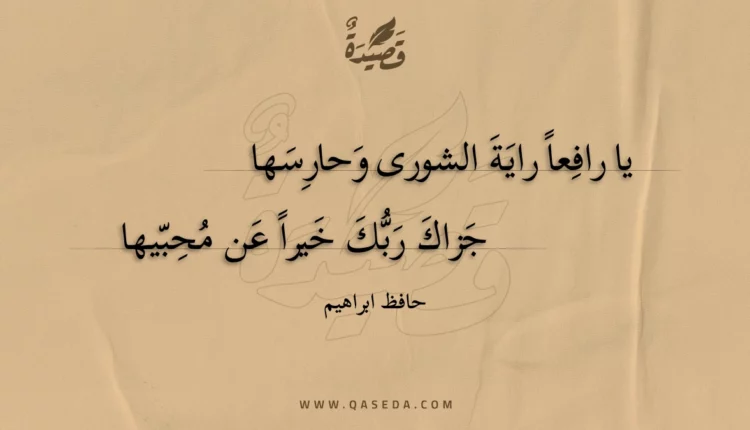 قَصِيدَةٌ
يا رافِعاً رايَةَ الشورى وَحارِسَها
جَزاكَ رَبُّكَ خَيراً عَن مُحِبّيها
حافظ ابراهيم
WWW.QASEDA.COM